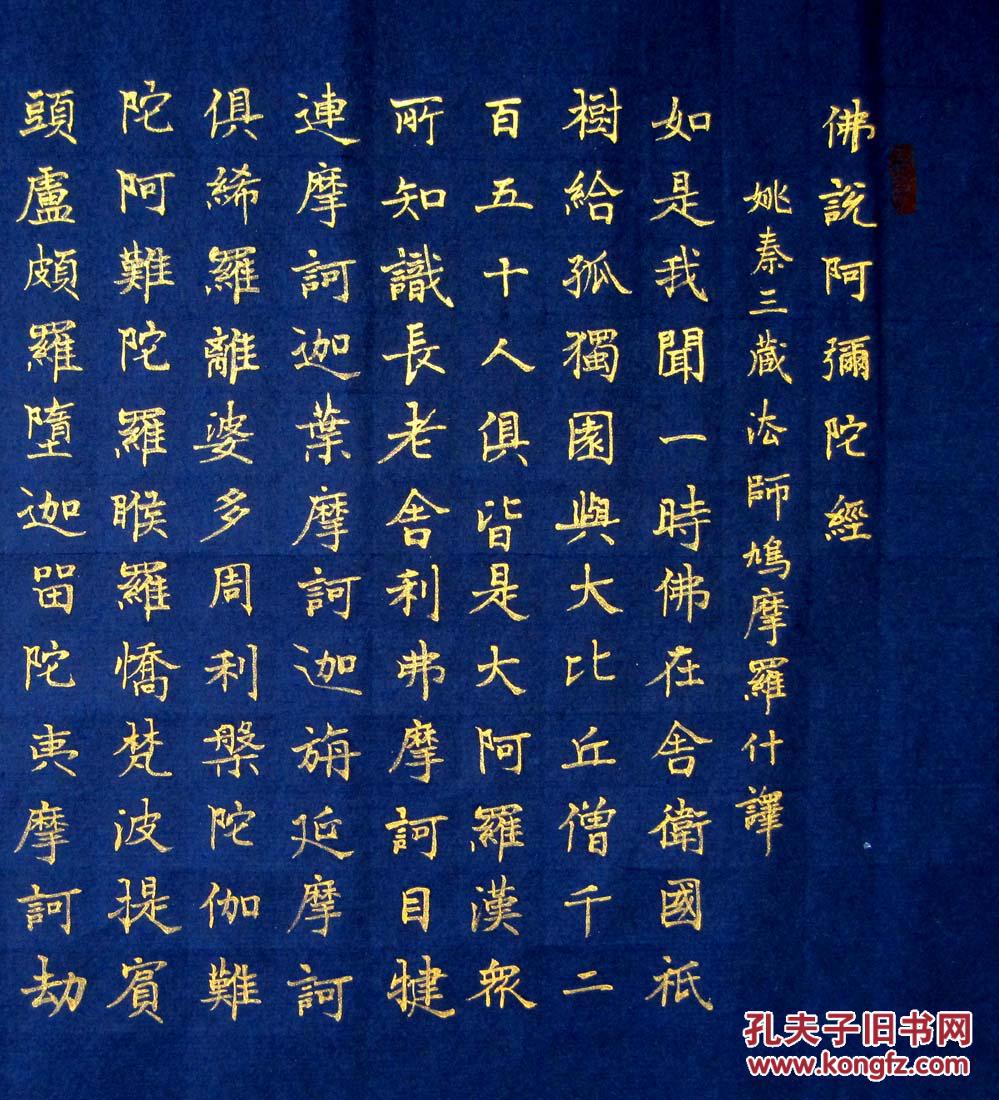 佛說阿彌陀經
姚秦三藏法師鳩摩羅什譯
如是我聞一時佛在舍衛國祇
樹給孤獨園與大比丘僧千二
百五十人俱皆是大阿羅漢衆
所知識長老舍利弗摩訶目犍
連摩訶迦葉摩訶迦旃延摩訶
俱絺羅離婆多周利槃陀伽難
陀阿難陀羅睺羅憍梵波提賓
頭盧頗羅墮迦留陀夷摩訶劫
孔夫子旧书网
www.kongfz.com